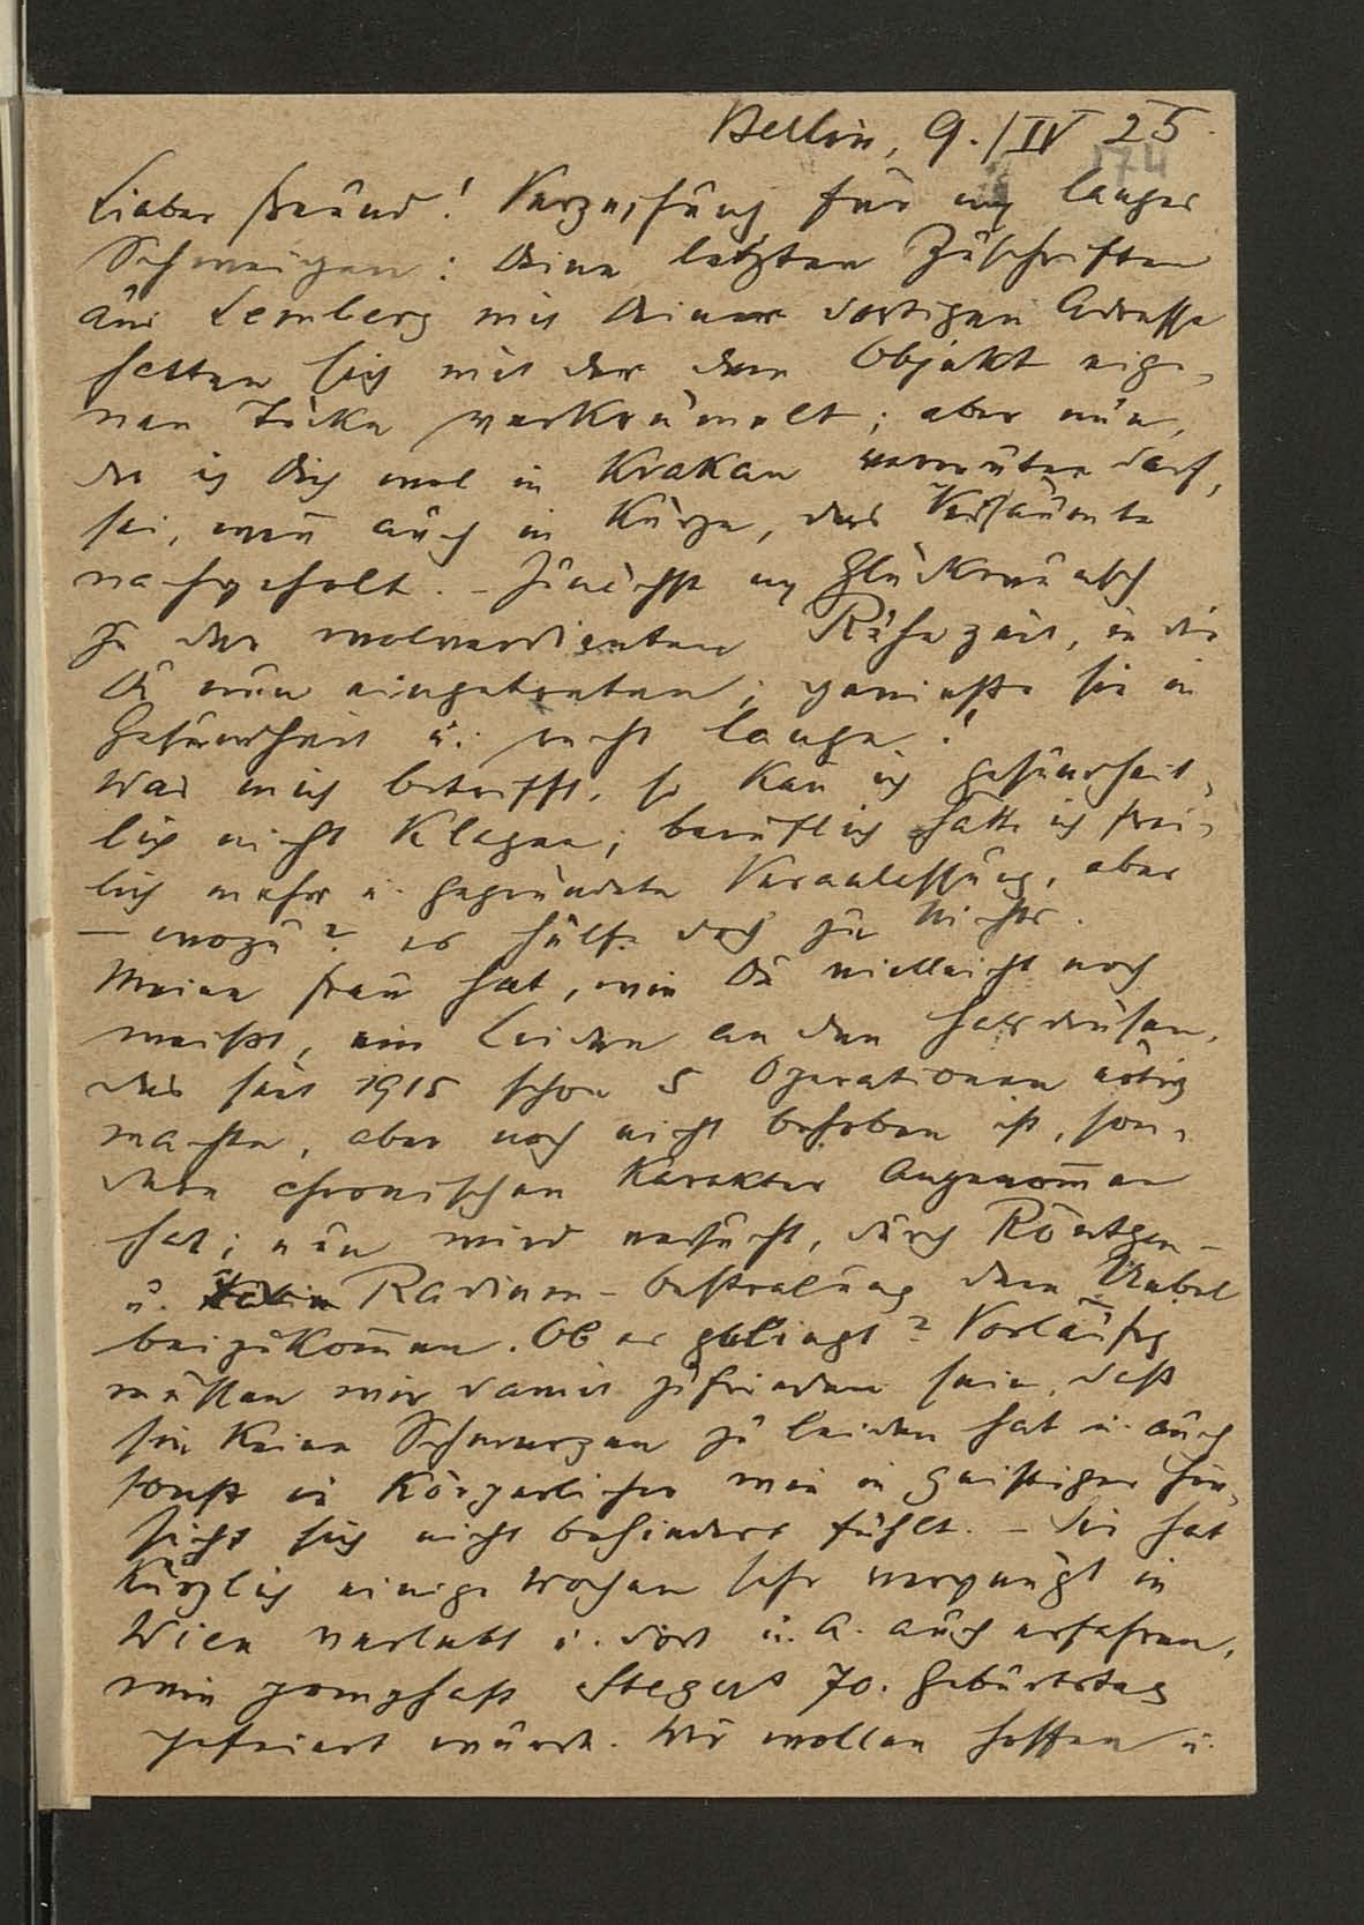 Berlin, 9./IV 25.
174
Lieber Freund! Verzeihung für mein langes
Schweigen: Deine letzten Zuschriften
aus Lemberg mit Deiner dortigen Adresse
hatten sich mit der dem Objekt eige-
nen Tücke verkrümelt; aber nun,
da ich Dich mal in Krakau vermuten darf,
sei, wenn auch in Kürze, das Versäumte
nachgeholt. – Zunächst m. Glückwunsch
zu der wolverdienten Ruhezeit, in die
Du nun eingetreten; geniesse sie in
Gesundheit u. recht lange!
Was mich betrifft, so kan̄ ich gesundheit-
lich nicht klagen; beruflich hätte ich frei-
lich mehr u. gegründete Veranlassung, aber
– wozu? es hülfe doch zu Nichts.
Meine Frau hat, wie Du vielleicht noch
weisst, ein Leiden an den Halsdrüsen,
das seit 1915 schon 5 Operationen nötig
machte, aber noch nicht behoben ist, son-
dern chronischen Karakter angenom̄en
hat; nun wird versucht, durch Röntgen-
u. Radium-bestralung dem Uebel
beizukom̄en. Ob es gelingt? Vorläufig
müssen wir damit zufrieden sein, dass
sie keine Schmerzen zu leiden hat u. auch
sonst in körperlicher wie in geistiger Hin-
sicht sich nicht behindert fühlt. – Sie hat
kürzlich einige Wochen sehr vergnügt in
Wien verlebt u. dort u. a. auch erfahren,
wie pomphaft Stegers 70. Geburtstag
gefeiert wurde. Wir wollen hoffen u.